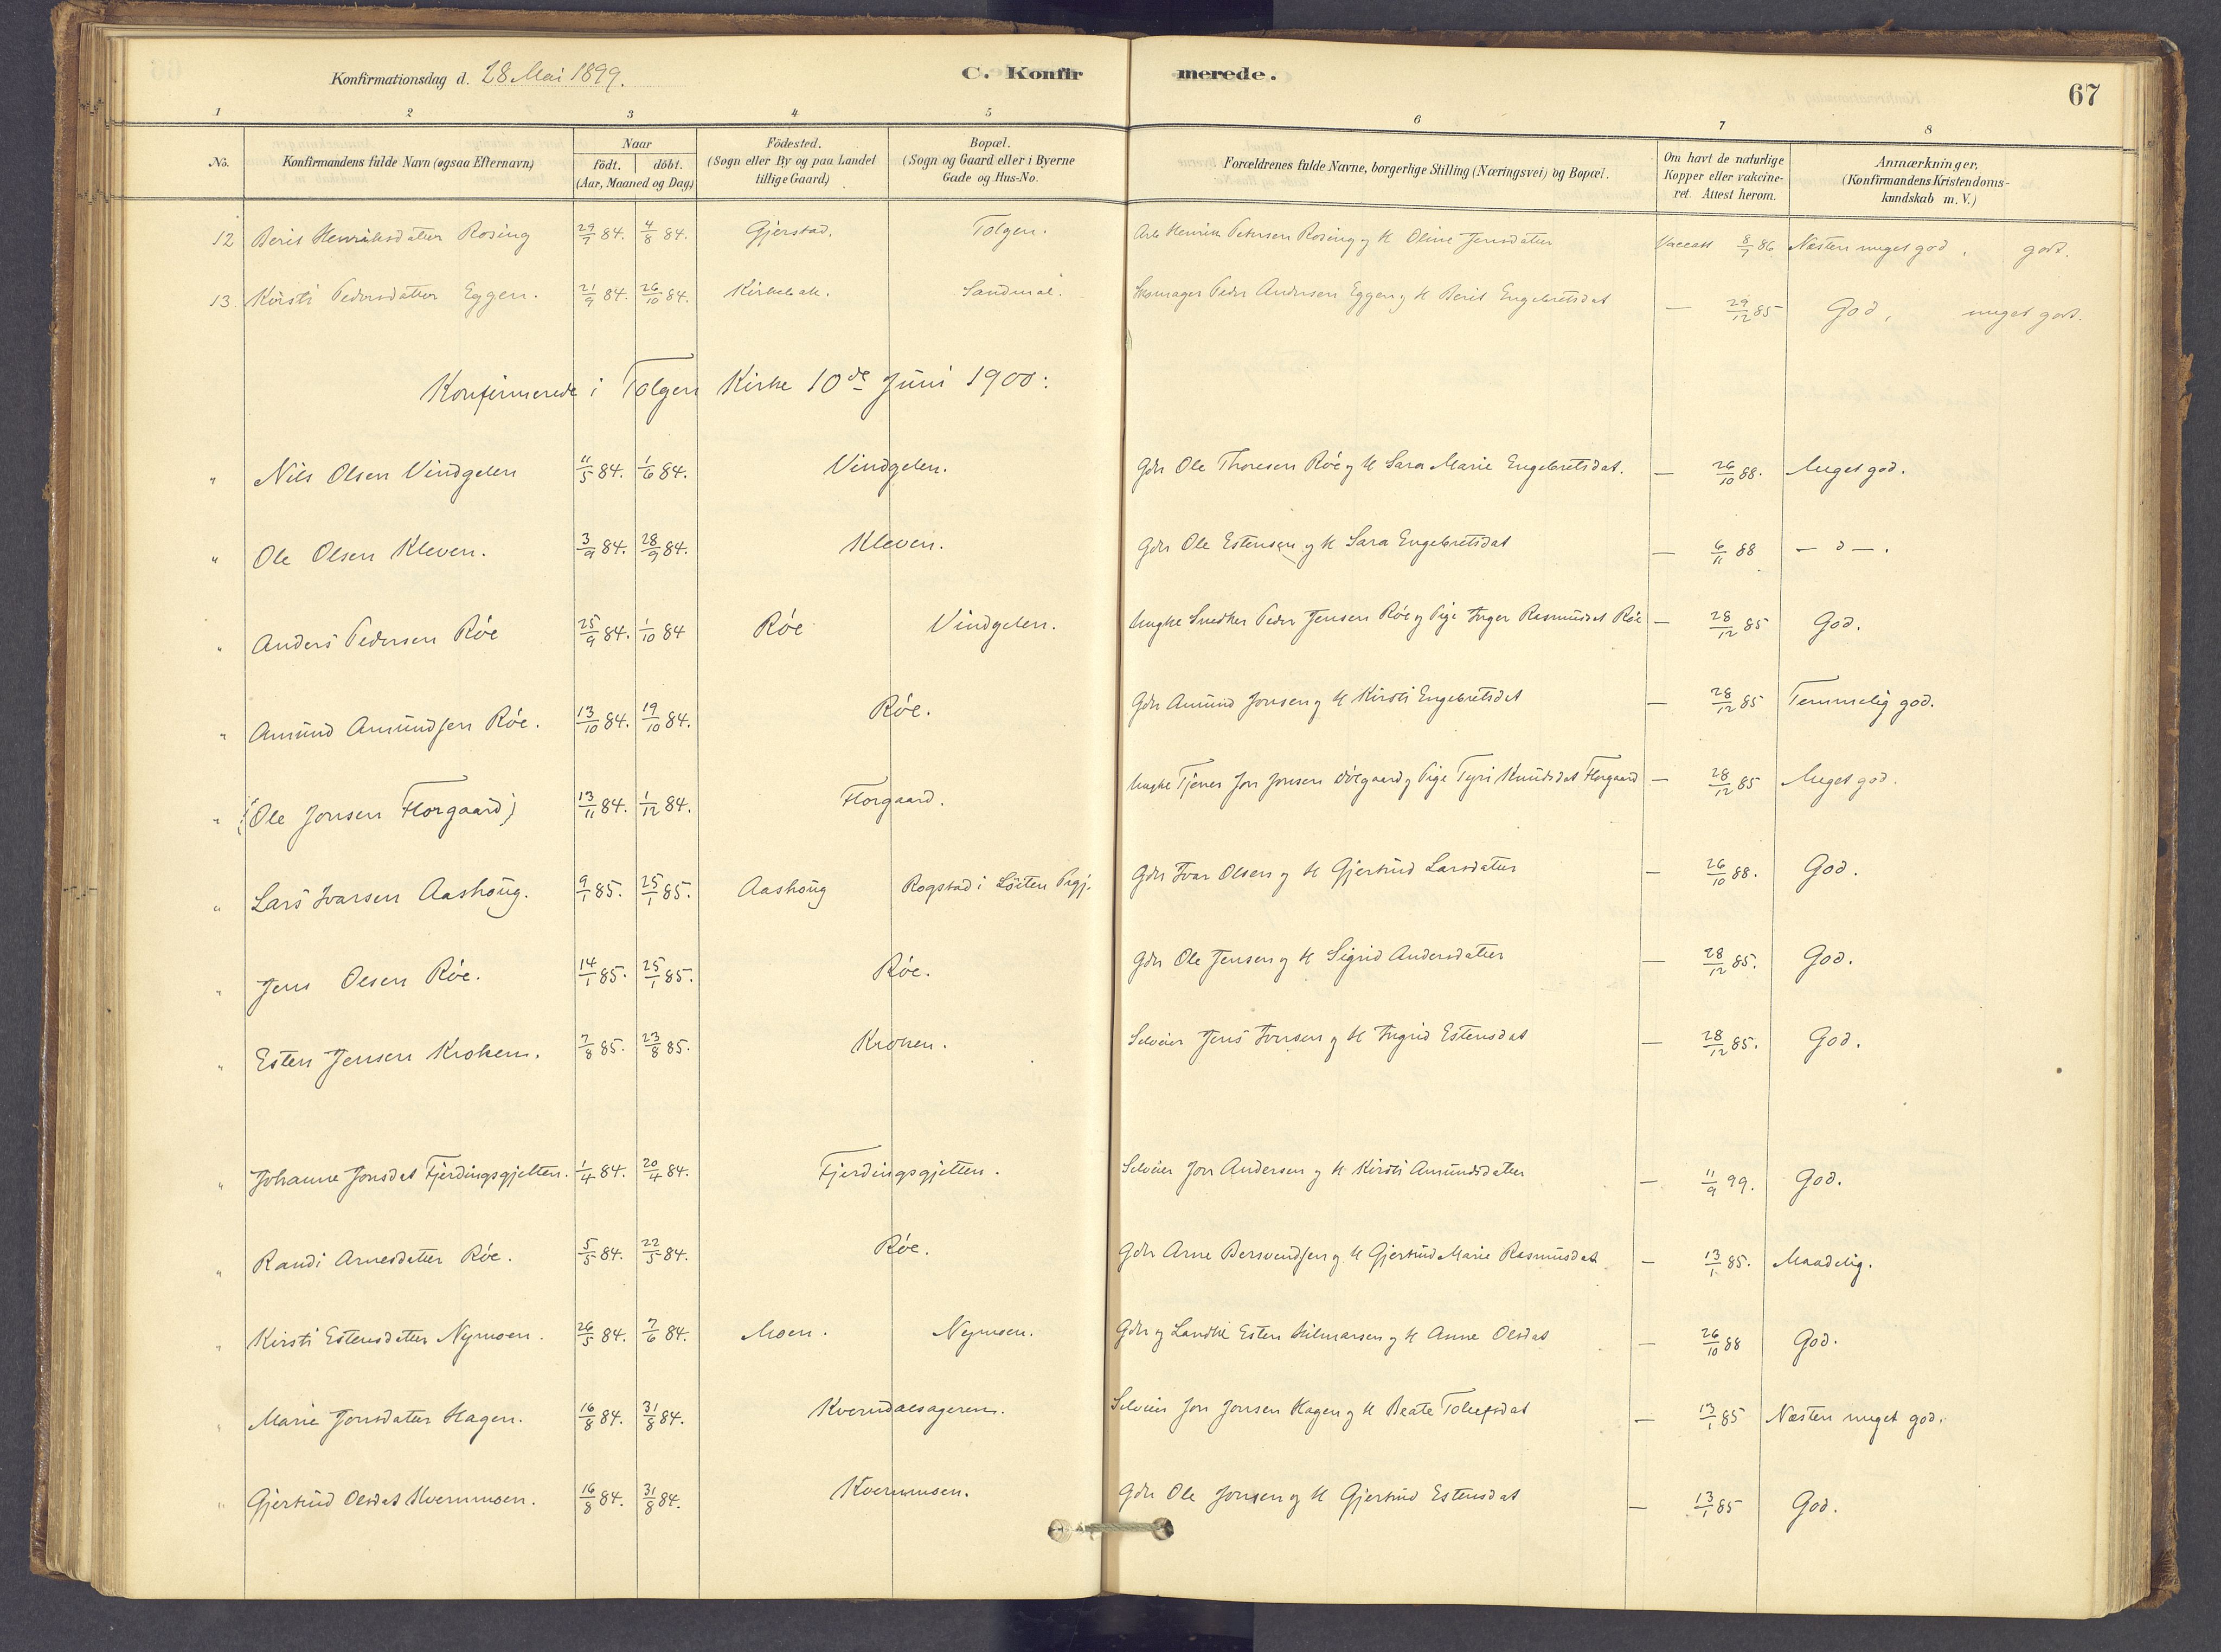 Konfirmationsdag d. 28 Mai 1899.
C. Konfirmerede.
67
1 2 3 4 5 6 7 8
No. Konfirmandens fulde Navn (ogsaa Efternavn) Naar födt. döbt. (Aar, Maaned og Dag) Födested. (Sogn eller By og paa Landet tillige Gaard) Bopæl. (Sogn og Gaard eller i Byerne Gade og Hus-No. Forældrenes fulde Navne, borgerlige Stilling (Næringsvei) og Bopæl. Om havt de naturlige Kopper eller vakcineret. Attest herom. Anmærkninger, (Konfirmandens Kristendomskundskab m. V.)
12 Berit Henriksdatter Rosing 29/7 84. 4/8 84. Gjerstad. Tolgen. Arb Henrik Petersen Rosing og H Oline Jensdatter Vaccatt 8/7 86 Næsten meget god, godt.
13. Kirsti Pedersdatter Eggen. 21/9 84. 26/10 84. Kirkebak. Sandmæl. Skomager Peder Andersen Eggen og H Berit Engebretsdat — 29/12 85 God, meget godt.
Konfirmerede i Tolgen Kirke 10de Juni 1900:
" Nils Olsen Vindgelen 11/5 84. 1/6 84. Vindgelen. Gdr Ole Thoresen Röe og H Sara Marie Engebretsdat. — 26/10 88. Meget god.
" Ole Olsen Kleven. 3/9 84. 28/9 84. Kleven. Gdr Ole Estensen og H Sara Engebretsdat — 6/11 88 — d —.
" Anders Pedersen Röe 25/9 84. 1/10 84 Röe Vindgelen. Ungke Snedker Peder Jensen Röe og Pige Inger Rasmusdat Röe — 28/12 85 God.
" Amund Amundsen Röe. 13/10 84. 19/10 84. Röe. Gdr Amund Jonsen og H Kirsti Engebretsdat — 28/12 85 Temmelig god.
" (Ole Jonsen Florgaard) 13/11 84. 1/12 84. Florgaard. Ungke Tjener Jon Jonsen Dölgaard og Pige Tyri Knudsdat Florgaard — 28/12 85 Meget god.
" Lars Ivarsen Aashoug. 9/1 85. 25/1 85. Aashoug Rogstad i Löiten Prgj. Gdr Ivar Olsen og H Gjertrud Larsdatter — 26/10 88. God.
" Jens Olsen Röe. 14/1 85. 25/1 85. Röe. Gdr Ole Jensen og H Sigrid Andersdatter — 28/12 85. God.
" Esten Jensen Kroken. 7/8 85. 23/8 85. Kroken. Selveier Jens Ivarsen og H Ingrid Estensdat — 28/12 85. God.
" Johanne Jonsdat Fjerdingsgjelten. 1/4 84. 20/4 84. Fjerdingsgjelten. Selveier Jon Andersen og H Kirsti Amundsdatter — 11/9 99. God.
" Randi Arnesdatter Röe. 5/5 84. 22/5 84. Röe. Gdr Arne Bersvendsen og H Gjertrud Marie Rasmusdat — 13/1 85. Maadelig.
" Kirsti Estensdatter Nymoen. 26/5 84. 7/6 84. Moen. Nymoen. Gdr og Landhl Esten Hilmarsen og H Anne Olsdat — 26/10 88 God.
" Marie Jonsdatter Hagen. 16/8 84. 31/8 84. Kverndalsageren. Selveier Jon Jonsen Hagen og H Beate Tollefsdat — 13/1 85 Næsten meget god.
" Gjertrud Olsdat Kvernmoen. 16/8 84. 31/8 84. Kvernmoen. Gdr Ole Jonsen og H Gjertrud Estensdat — 13/1 85 God.